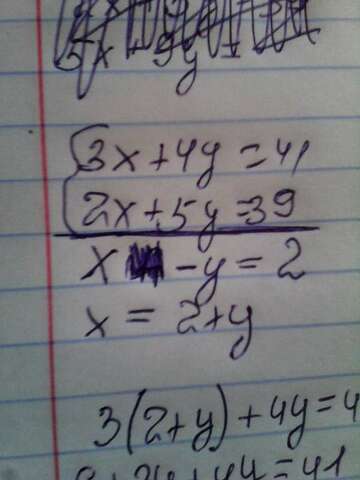 3x+4y=41
2x+5y=39
x -y=2
x=2+y
3(2+y)+4y=4